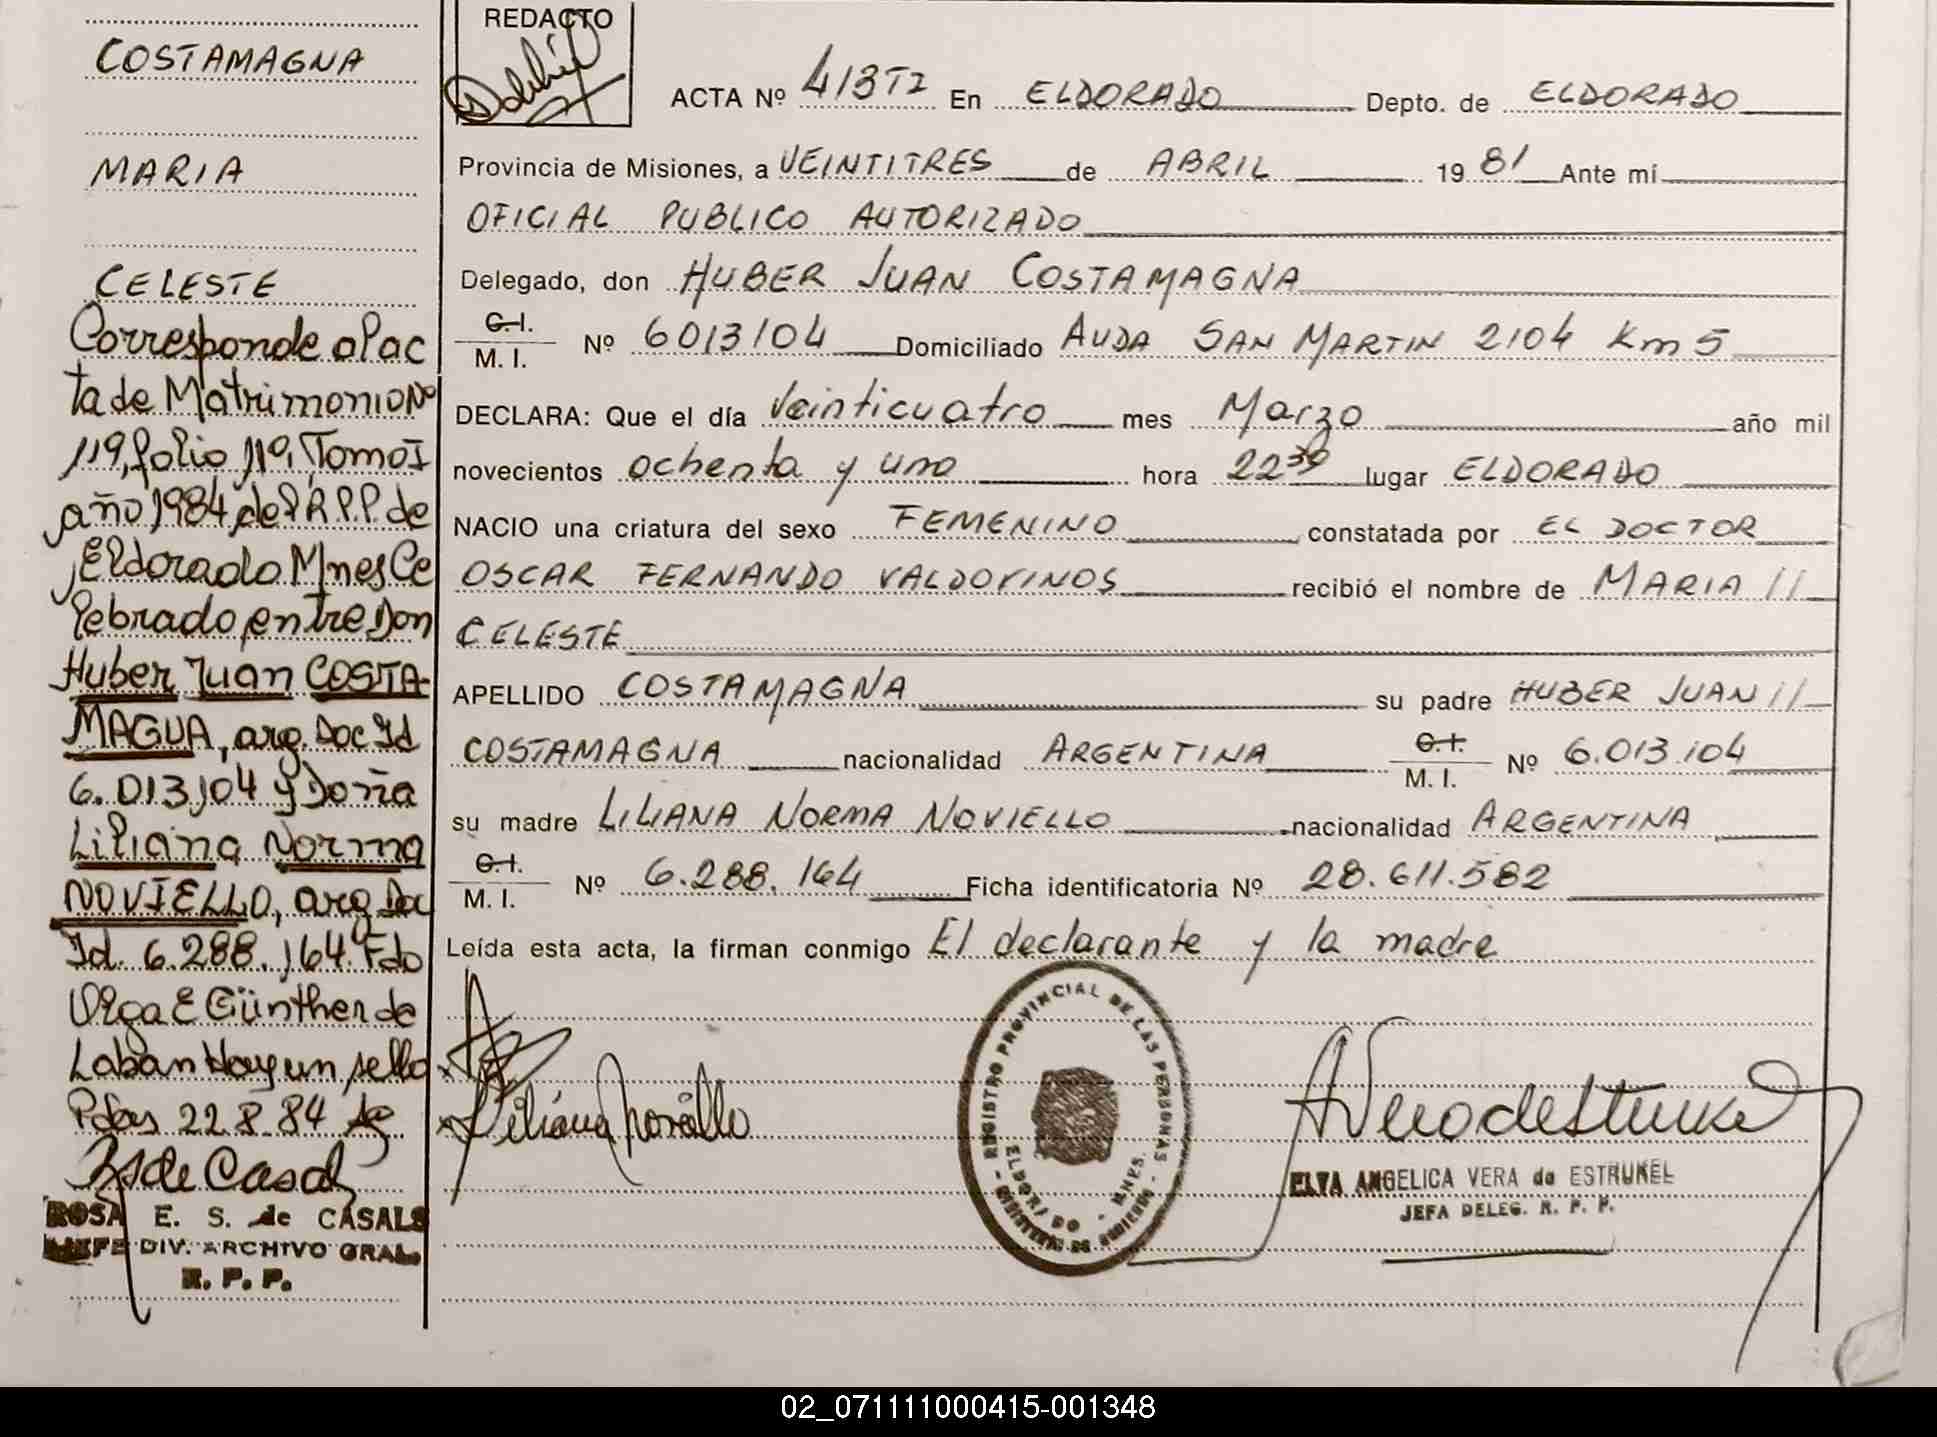 COSTAMAGNA
MARIA
CELESTE
Corresponde al ac
ta de Matrimonio Nº
119, folio 119, Tomo I
año 1984 del R.P.P. de
Eldorado Mnes Ce
lebrado entre Don
Huber Juan COSTA-
MAGUA, arg. Doc Id
6.013.104 y Doña
Liliana Norma
NOVIELLO, arg Doc
Id. 6.288.164. Fdo
Olga E Günther de
Laban Hay un sello
Pdas 22.8.84
de Casals
ROSA E. S. de CASALS
JEFE DIV. ARCHIVO GRAL.
R. P. P.
REDACTO
ACTA Nº 413 T2 En ELDORADO Depto. de ELDORADO
Provincia de Misiones, a VEINTITRES de ABRIL 1981 Ante mí
OFICIAL PUBLICO AUTORIZADO
Delegado, don HUBER JUAN COSTAMAGNA
C.I. M. I. Nº 6013104 Domiciliado AVDA SAN MARTIN 2104 Km 5
DECLARA: Que el día Veinticuatro mes Marzo año mil
novecientos ochenta y uno hora 22 30 lugar ELDORADO
NACIO una criatura del sexo FEMENINO constatada por EL DOCTOR
OSCAR FERNANDO VALDOVINOS recibió el nombre de MARIA //
CELESTE
APELLIDO COSTAMAGNA su padre HUBER JUAN //
COSTAMAGNA nacionalidad ARGENTINA C.I. M. I. Nº 6.013.104
su madre LILIANA NORMA NOVIELLO nacionalidad ARGENTINA
C.I. M. I. Nº 6.288.164 Ficha identificatoria Nº 28.611.582
Leída esta acta, la firman conmigo El declarante y la madre
Liliana Noviello
REGISTRO PROVINCIAL DE LAS PERSONAS
ELDORADO - MNES.
MINISTERIO DE GOBIERNO
AVera de Estrukel
ELVA ANGELICA VERA de ESTRUKEL
JEFA DELEG. R. P. P.
02_071111000415-001348